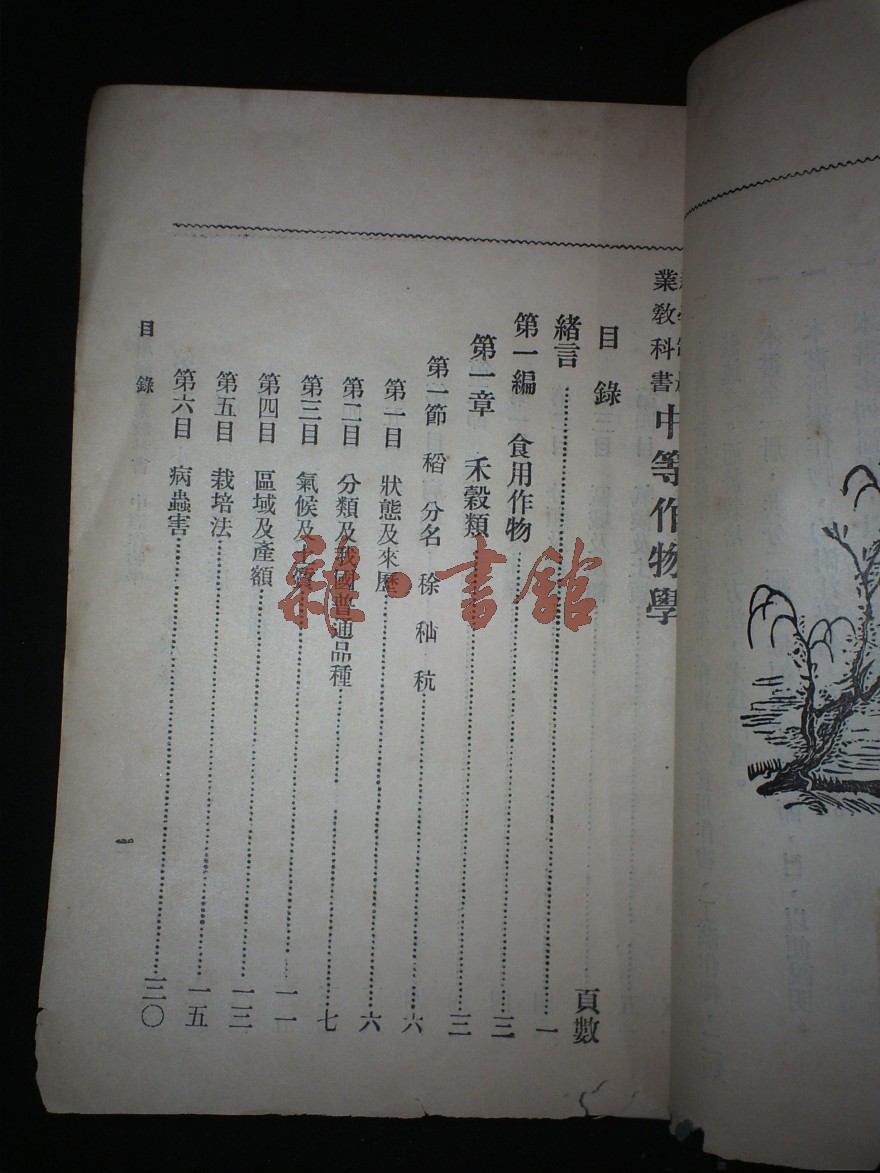 業教科書 中等作物學
目錄
頁數
緒言 一
第一編 食用作物 三
第一章 禾穀類 三
第一節 稻 分名 稌 秈 秔 六
第一目 狀態及來歷 六
第二目 分類及我國普通品種 七
第三目 氣候及土質 一一
第四目 區域及產額 一三
第五目 栽培法 一五
第六目 病蟲害 三〇
目錄
一
雜·書館